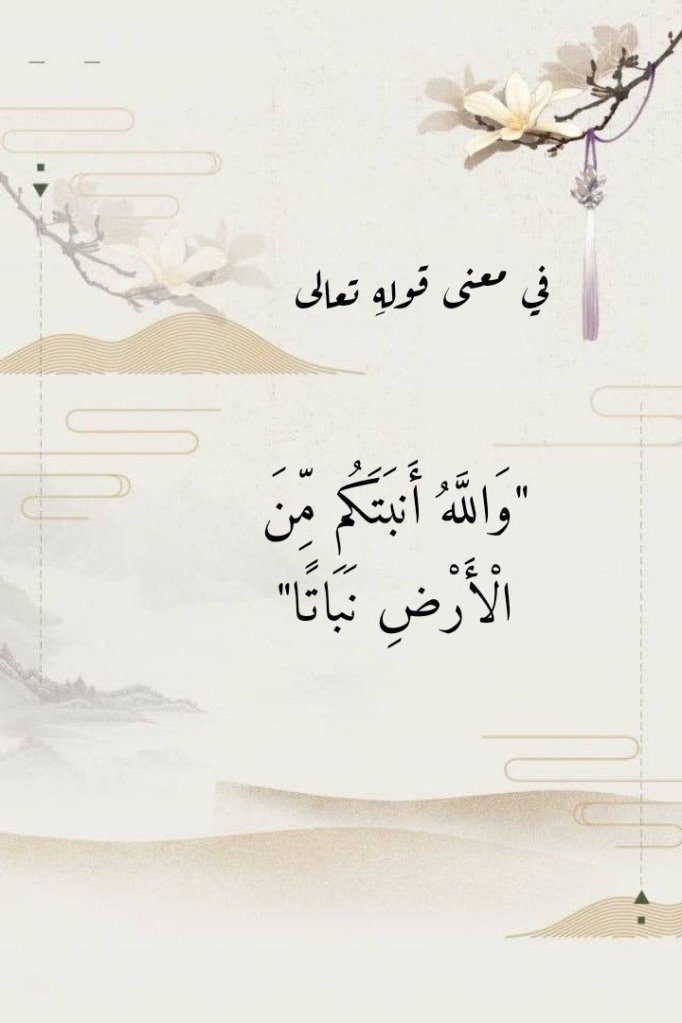 في معنى قولهِ تعالى
"وَاللَّهُ أَنبَتَكُم مِّنَ
الْأَرْضِ نَبَاتًا"